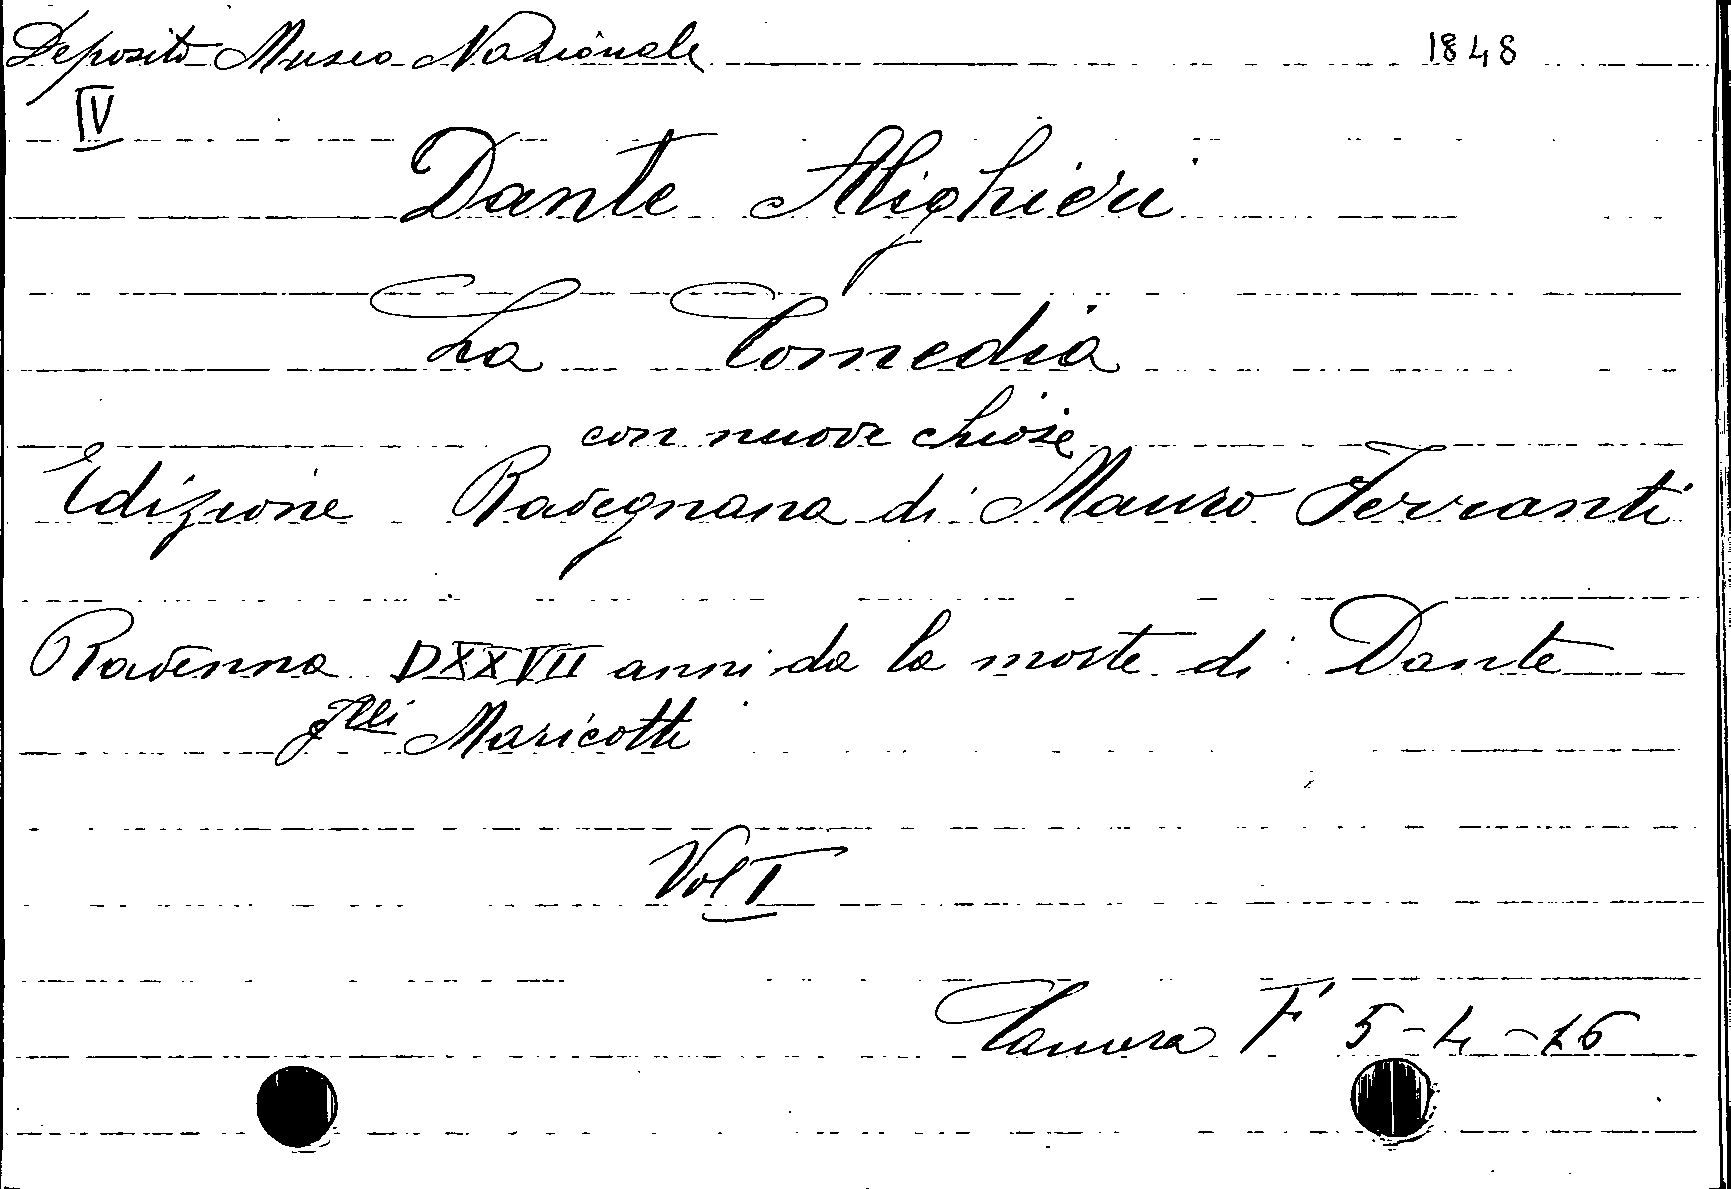 Deposito Museo Nazionale 1848
IV
Dante Alighieri
La Comedia
con nuove chiose
Edizione Ravegnana di Mauro Ferranti
Ravenna DXXVII anni da la morte di Dante
flli Maricotti
Vol I
Camera F 5-4-26